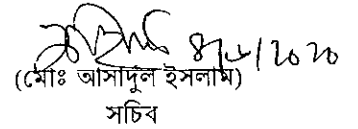 ৪/৬/২০২০
(মোঃ আসাদুল ইসলাম)
সচিব